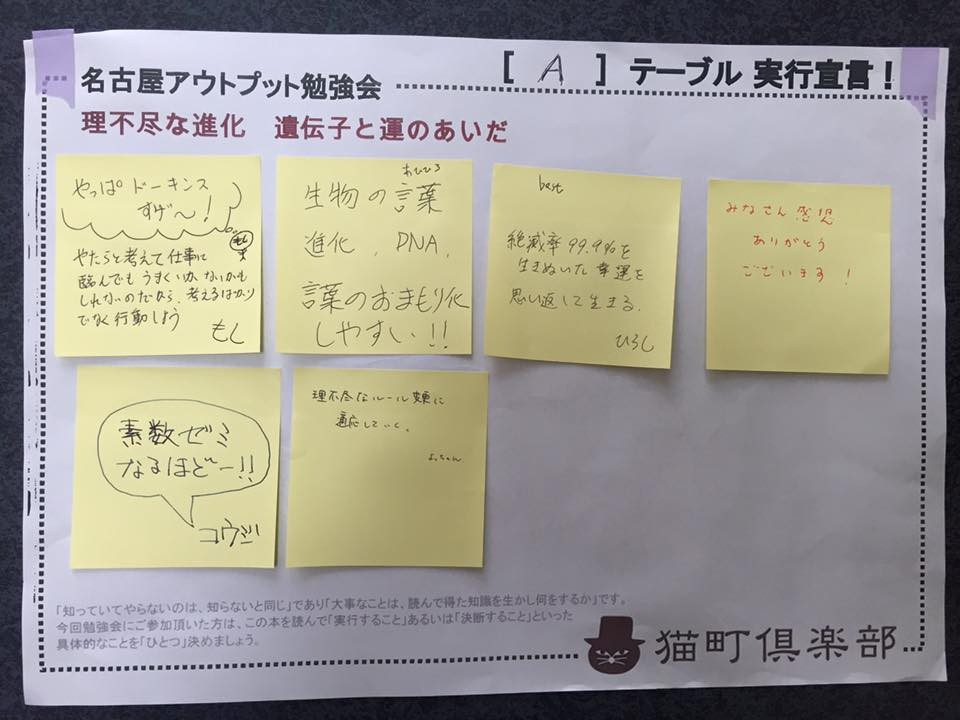 名古屋アウトプット勉強会
[ A ] テーブル 実行宣言!
理不尽な進化 遺伝子と運のあいだ
やっぱドーキンス
すげ〜!
やたらと考えて仕事に
臨んでもうまくいかないかも
しれないのだから、考えるばかり
でなく行動しよう
もし
おひろ
生物の言葉
進化、DNA、
言葉のおまもり化
しやすい!!
best
絶滅率99.9%を
生きぬいた幸運を
思い返して生きる.
ひろし
みなさん
ありがとう
ございます!
素数ゼミ
なるほどー!!
コウジ
理不尽なルール変更に
適応していく。
よっちゃん
「知っていてやらないのは、知らないと同じ」であり「大事なことは、読んで得た知識を生かし何をするか」です。
今回勉強会にご参加頂いた方は、この本を読んで「実行すること」あるいは「決断すること」といった
具体的なことを「ひとつ」決めましょう。
猫町倶楽部